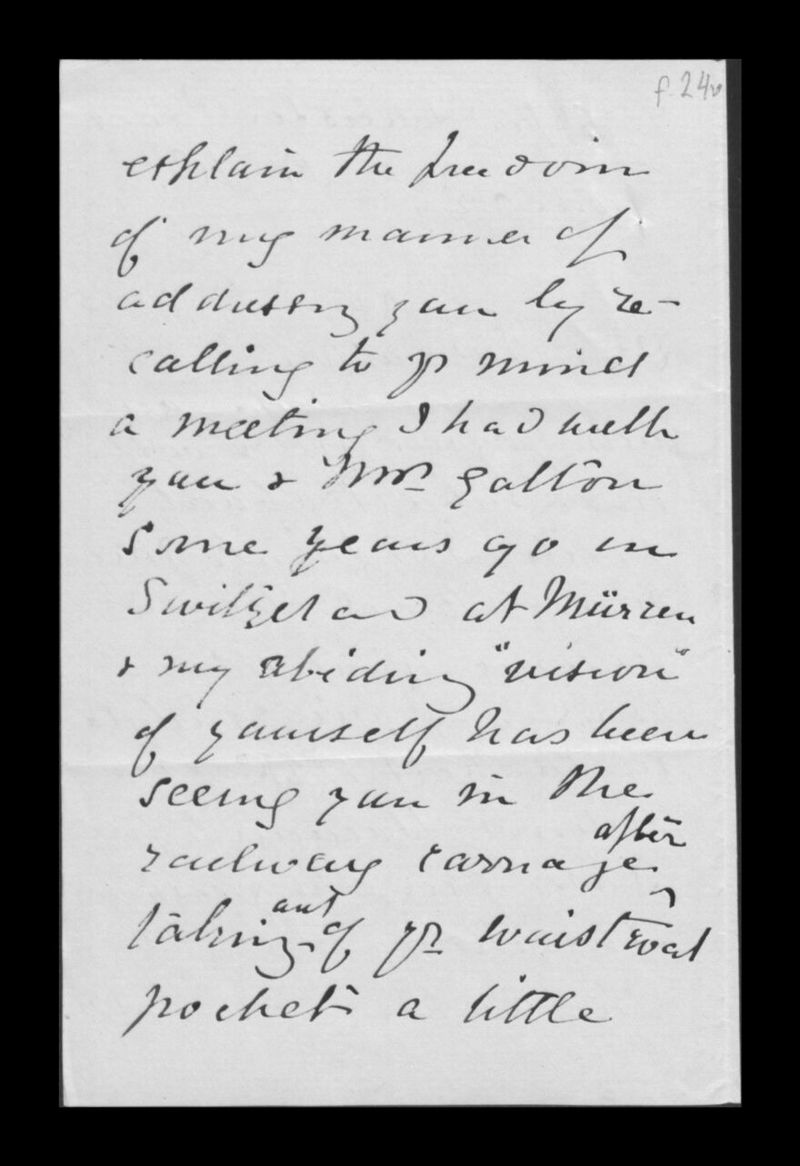 f. 24v
explain the freedom
of my manner of
addressing you by re-
calling to yr mind
a meeting I had with
you & Mrs Galton
some years ago in
Switzerland at Mürren
& my abiding "vision"
of yourself has been
seeing you in the
after
railway carriage ^
out
taking of yr waistcoat
pocket a little